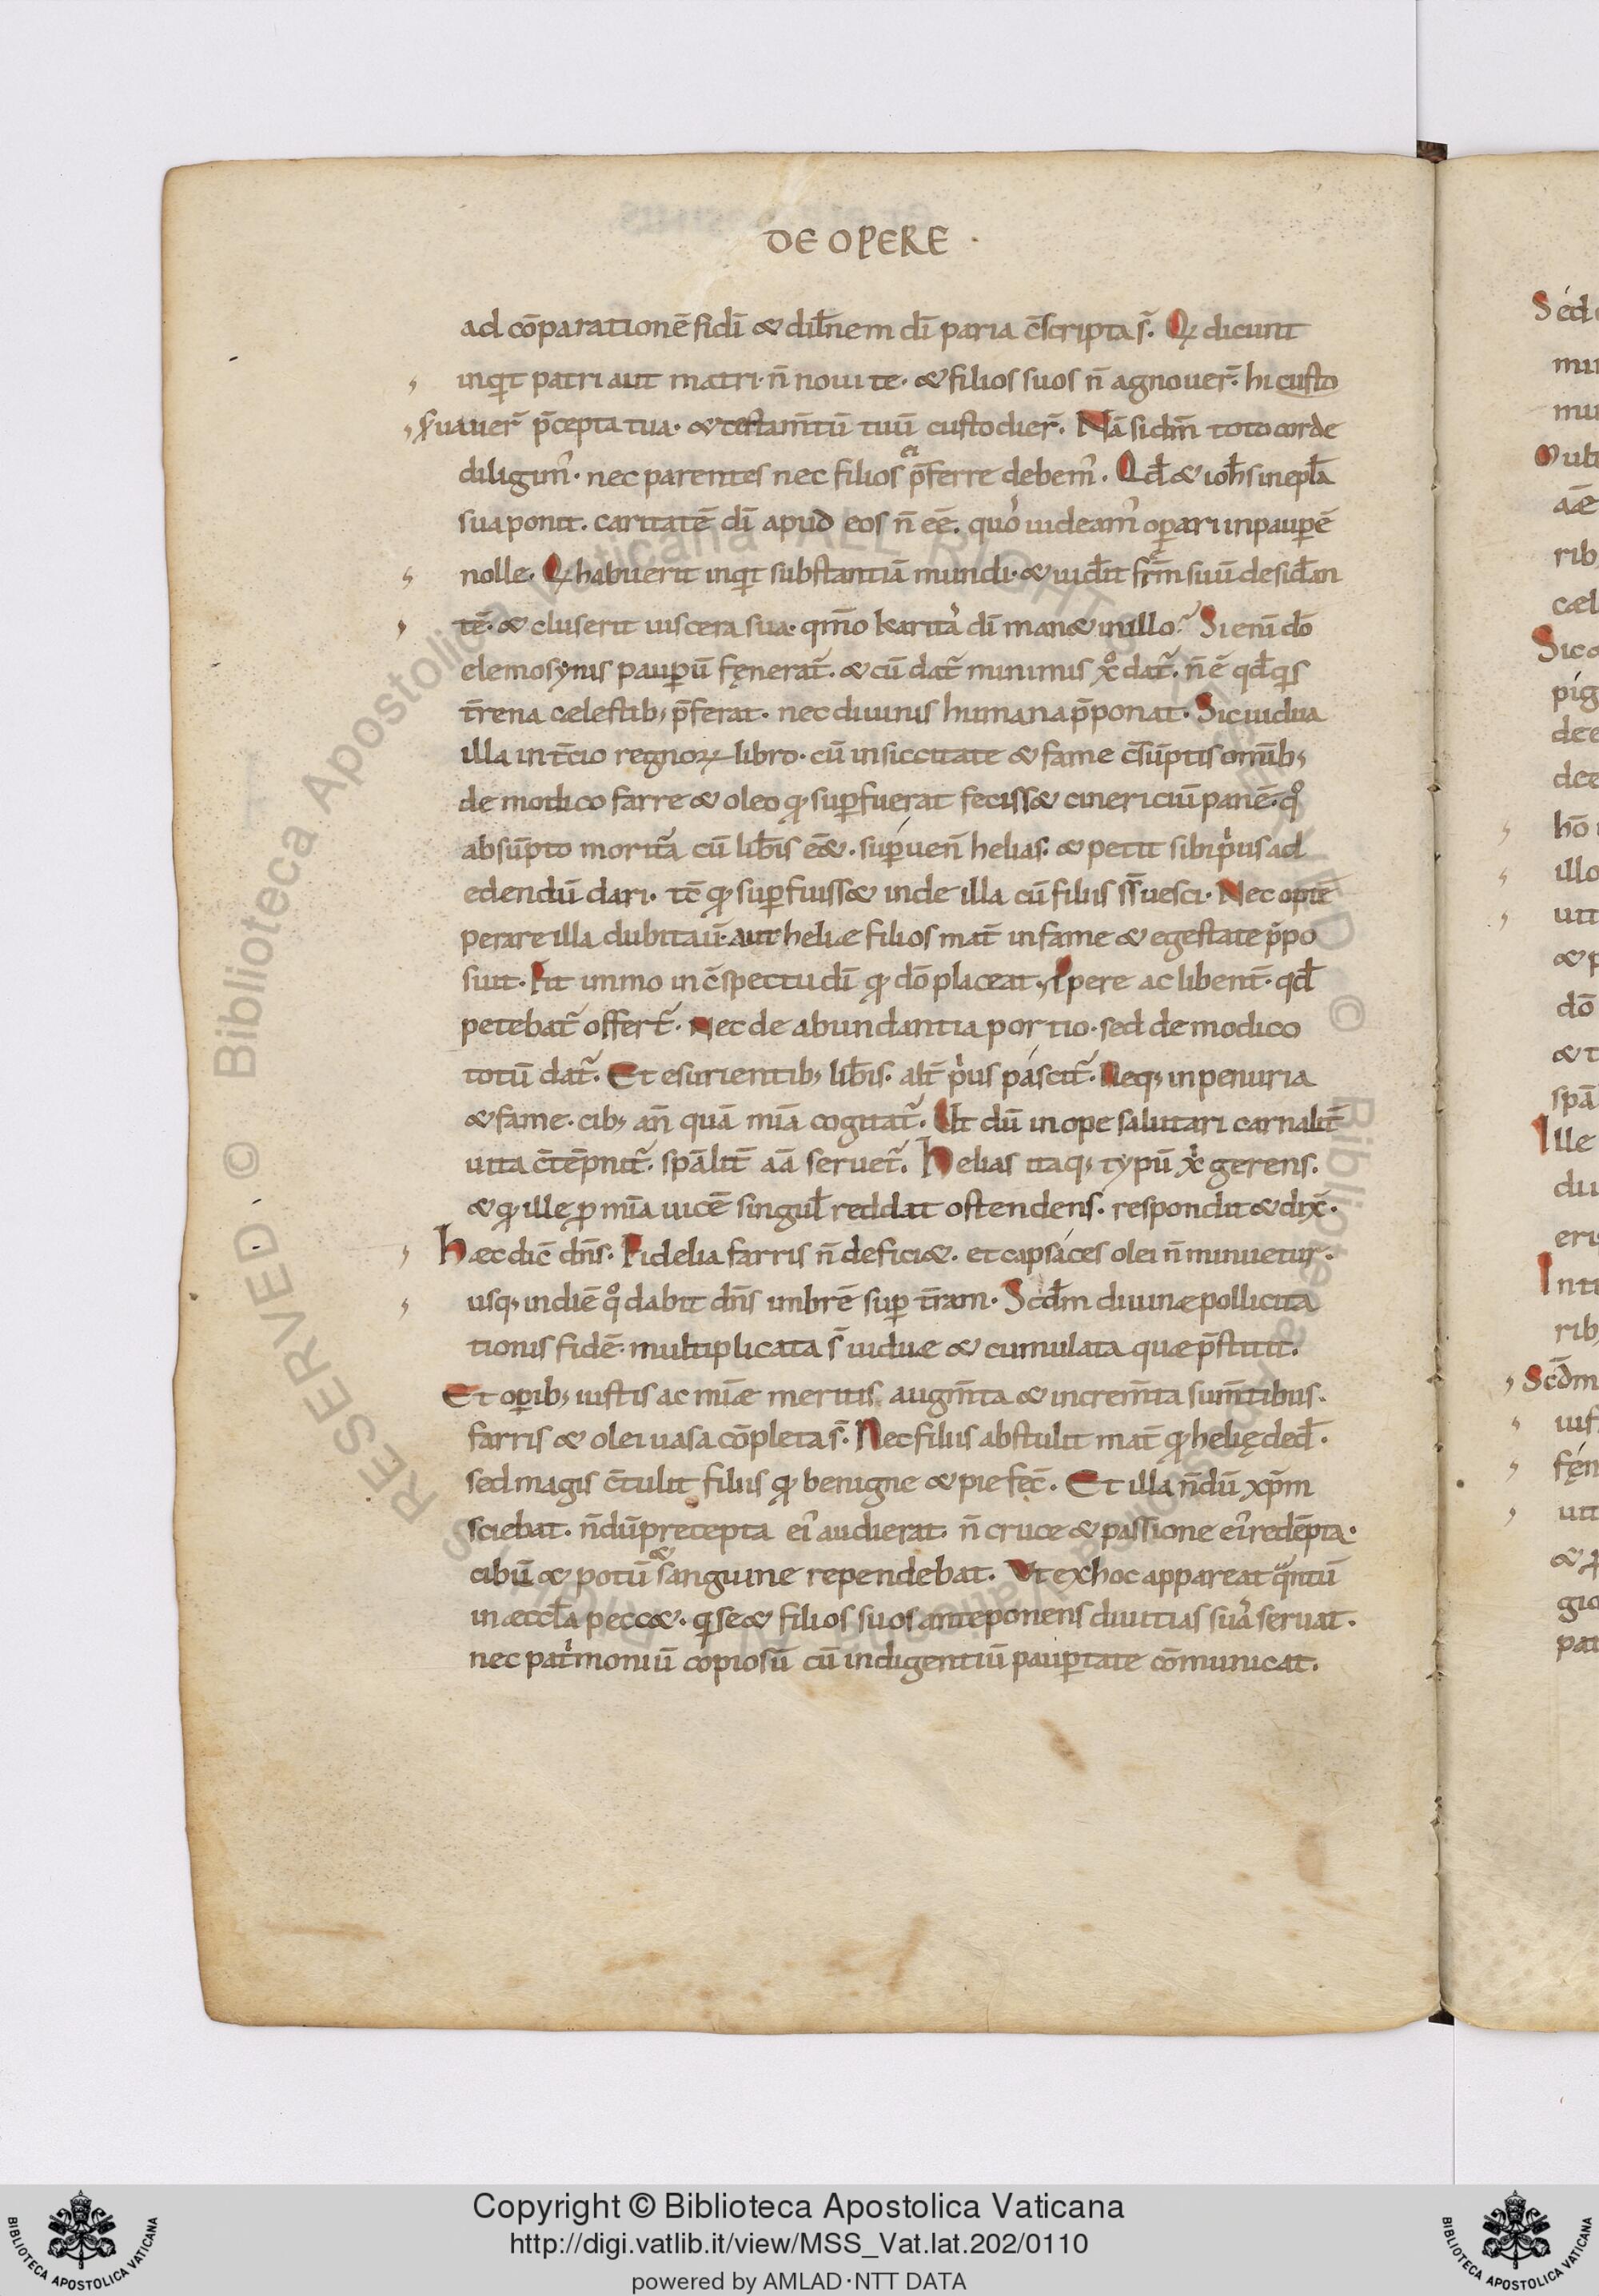 DE OPERE ·
ad cōparationē fidī & dil̄nem dī paria c̄scripta s̄. Qı dicunt
inqt patri aut matri· n̄ noui te· & filios suos n̄ agnouer̄· hi custo
seruauer̄ p̄cepta tua· & testam̄tū tuū custodier̄. Nā si dm̄ toto corde
diligim᾽· nec parentes nec filios ei p̄ferre debem᾽. Qd̄ & ioh̄s in epl̄a
sua ponit. caritatē dī apud eos n̄ eē. quo᾽ uideam᾽ opari in paupē
nolle. Qı habuerit inqt substantiā mundi· & uid̄it fr̄m suū desid̄an
tē· & cluserit uiscera sua· qm̄o karita᾽ dī man& in illo? Si enī dō
elemosynis paupū fęnerat̄. & cū dat̄ minimis xo dat̄. n̄ ē qd̄ qs
t̄rena celestib; p̄ferat· nec diuinis humana p̄ponat. Sic uidua
illa in t̄cio regnoꝝ libro· cū in siccitate & fame c̄sūptis omīb;
de modico farre & oleo qı supfuerat feciss& cinericiū panē· qo
absūpto morit̄a cū lib̄is eē&. supuen̄ helias. & petit sibi p᾽us ad
edendū dari· tc̄ qı supfuiss& inde illa cū filiis ss̄ uesci· Nec opte
perare illa dubitau̅· aut heliæ filios mat̄ in fame & egestate p̄po
suit· Fit immo in c̄spectu dī qı dō placeat. p̄pere ac libent̄· qd̄
petebat̄ offert̄. Nec de abundantia portio· sed de modico
totū dat̄. Et esurientib; lib̄is. alt̄ p᾽us pascit̄. Neq; in penuria
& fame· cib; an̄ quā mīa cogitat̄. Ut dū in ope salutari carnalit̄
uita c̄tēpnit̄. spālit̄ aā seruet̄. Helias itaq; typū xi gerens.
& qı ille p mīa uicē singul̄ reddat ostendens. respondit & dix̄.
Hæc dic̄ dn̄s. Fidelia farris n̄ defici&. et capsáces olei n̄ minuetur.
usq; in diē qo dabit dn̄s imbrē sup t̄ram. Scd̄m diuinæ pollicita
tionis fidē· multiplicata s̄ uiduæ & cumulata quæ p̄stitit.
Et opib; iustis ac mīæ meritis augm̄ta & increm̄ta sum̄tibus.
farris & olei uasa cōpleta s̄. Nec filiis abstulit mat̄ qı helię ded̄.
sed magis c̄tulit filiis qı benigne & pie fec̄. Et illa n̄dū xp̄m
sciebat. n̄dū precepta ei᾽ audierat. n̄ cruce & passione ei᾽ redēpta.
cibū & potū & sanguine rependebat. Ut ex hoc appareat qntū
in æccl̄a pecc&. qı se & filios suos anteponens diuitias sua᾽ seruat.
nec pat᾽moniū copiosū cū indigentiū pauptate cōmunicat.
Copyright © Biblioteca Apostolica Vaticana
http://digi.vatlib.it/view/MSS_Vat.lat.202/0110
powered by AMLAD·NTT DATA